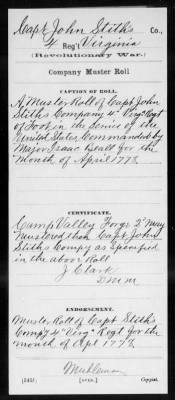 Capt John Stith's Co.,
4 Reg't Virginia
(Revolutionary War.)
Company Muster Roll
CAPTION OF ROLL.
A Muster Roll of Capt John
Stiths Company 4" Virg' Regt
of Foot in the Service of the
United States Commanded by
Major Isaac Beall for the
Month of April 1778.
CERTIFICATE.
Camp Valley Forge 2" May
Mustered then Capt John
Stiths Compy as Specified
in the above Roll
J Clark
D M M
ENDORSEMENT.
Muster Roll of Capt Stith's
Comp'y 4" Virg' Regt for the
month of Apl 1778
Copyist.